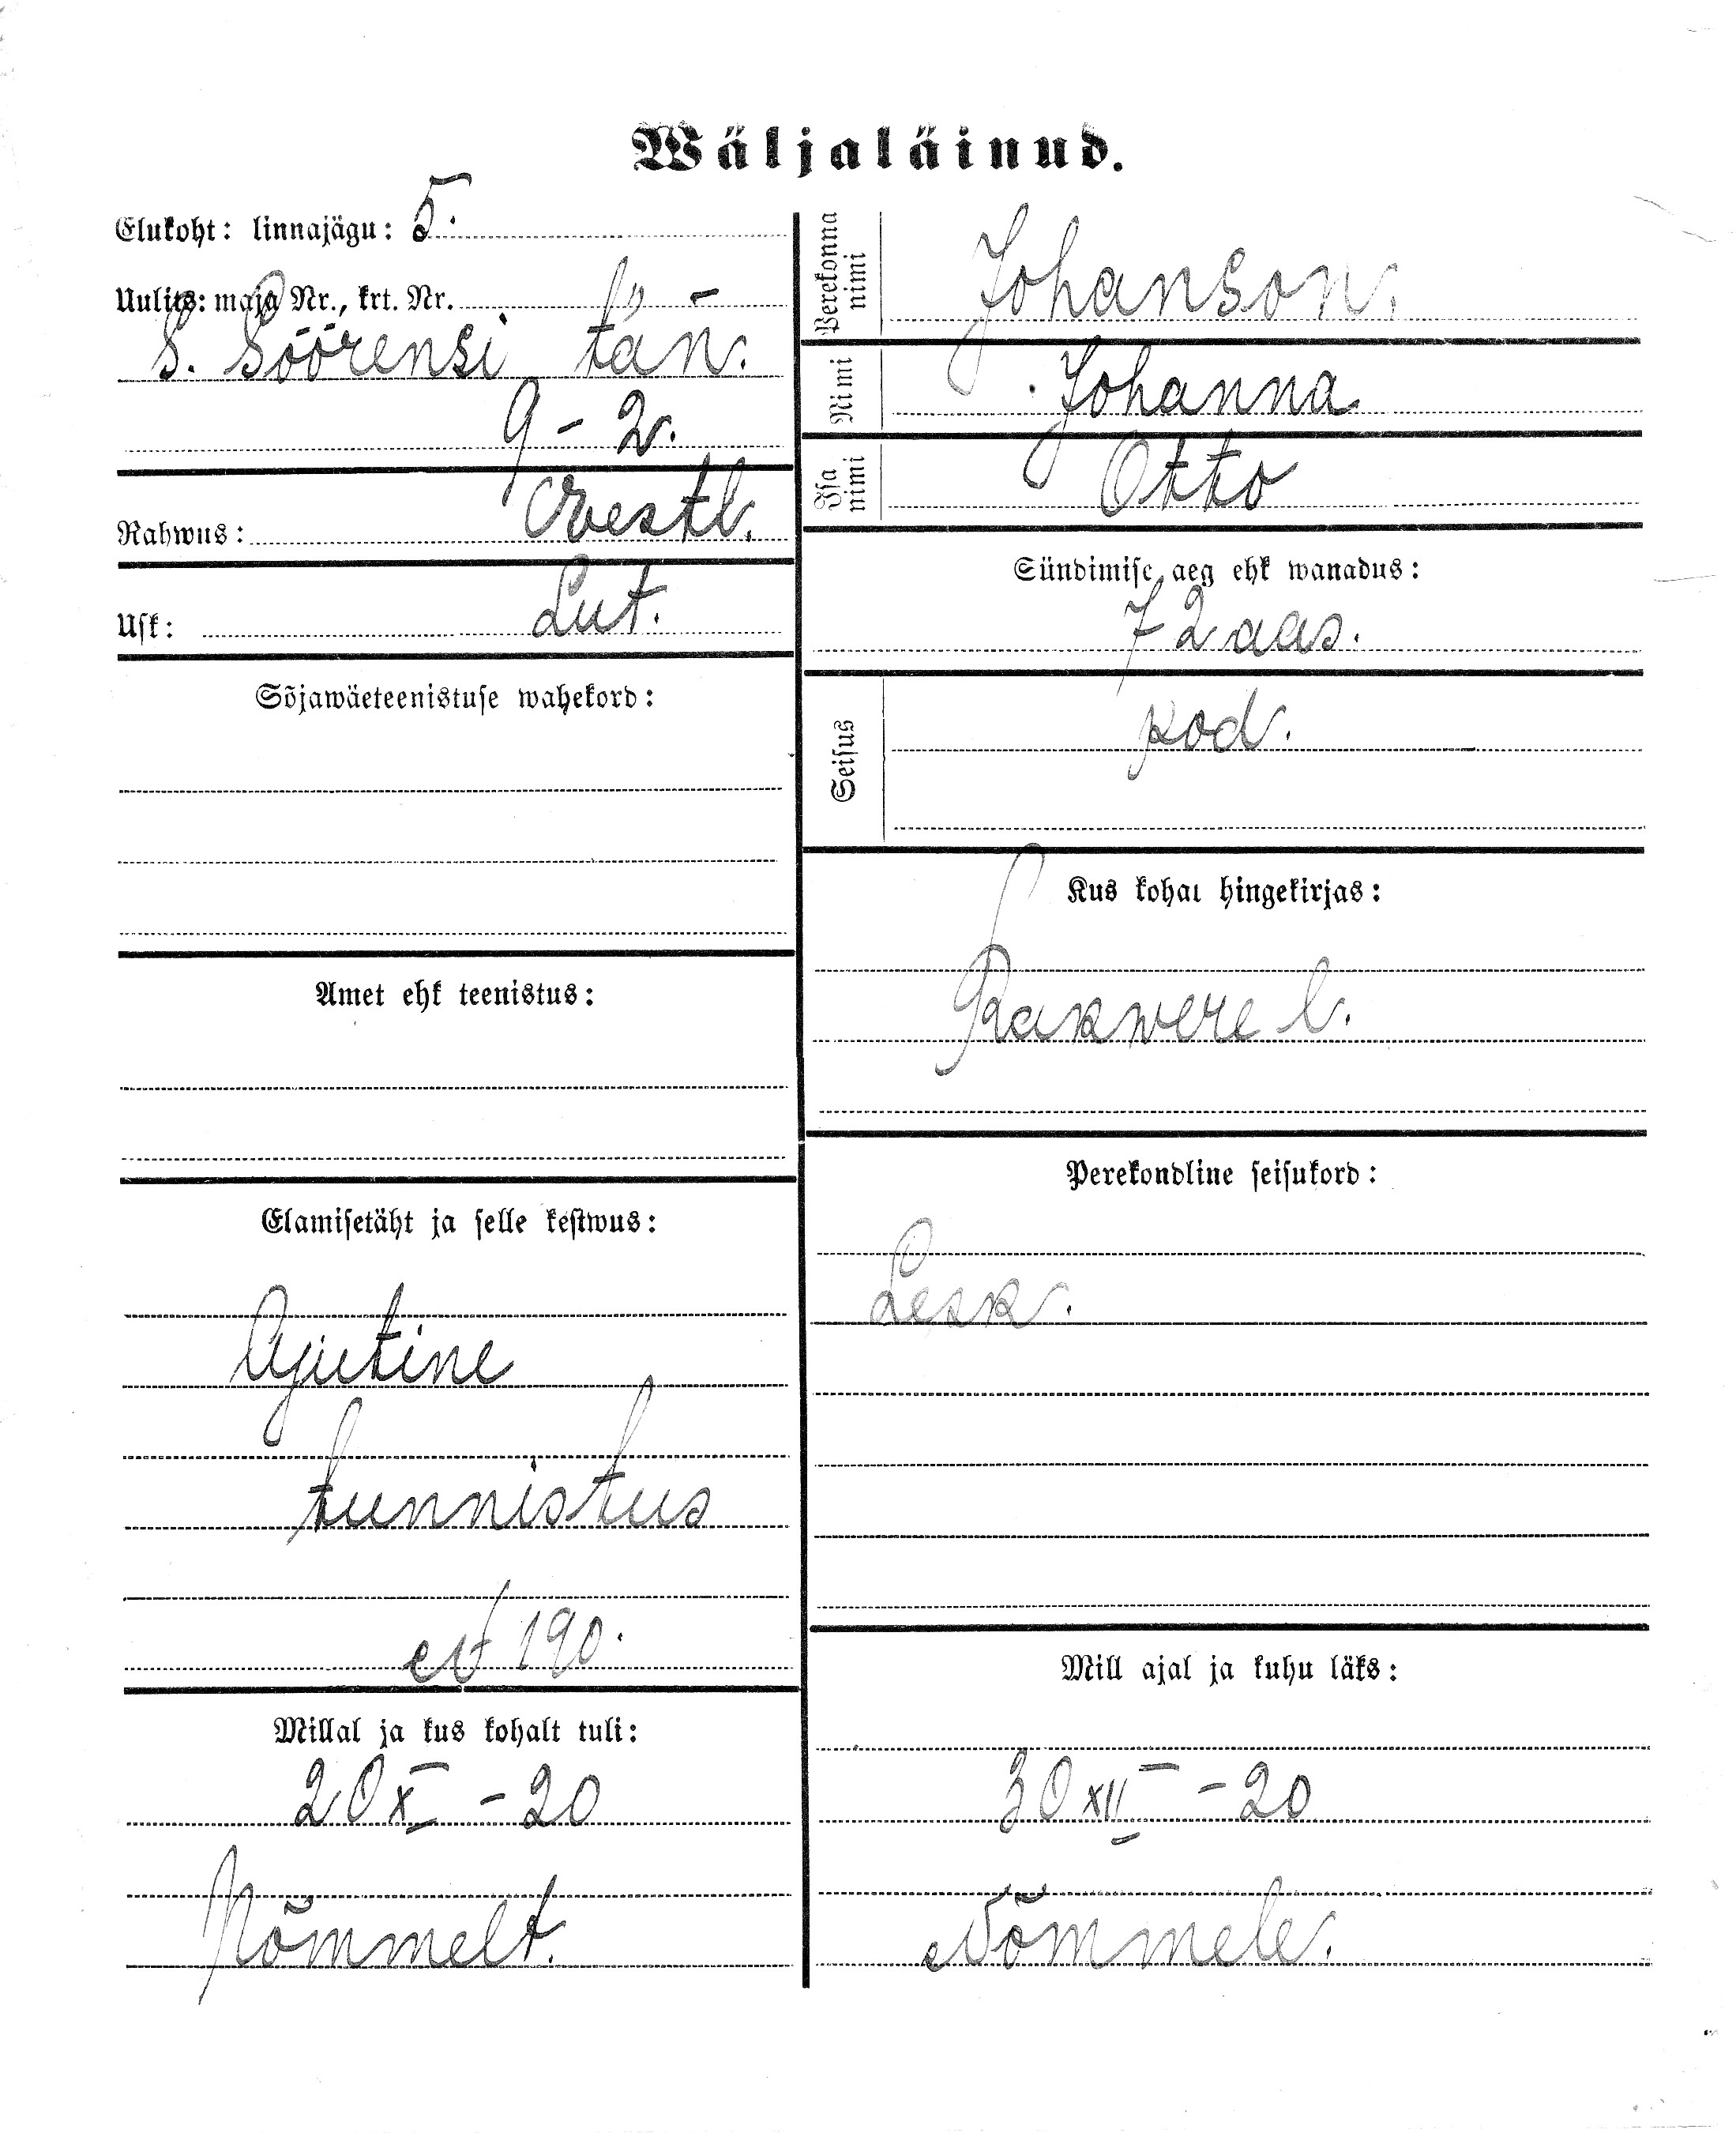 Wäljaläinud.
Elukoht: linnajägu: 5.
Uulits: maja Nr., krt. Nr.
S. Söörensi tän.
9 – 2.
Rahwus: Eestl.
Usk: Lut.
Sõjawäeteenistuse wahekord:
Amet ehk teenistus:
Elamisetäht ja selle kestwus:
Ajutine
tunnistus
№ 190.
Millal ja kus kohalt tuli:
20 X – 20
Nõmmelt.
Perekonna nimi Johanson.
Nimi Johanna
Isa nimi Otto
Sündimise aeg ehk wanadus:
72 aas.
Seisus kod.
Kus kohal hingekirjas:
Rakwere l.
Perekondline seisukord:
Lesk.
Mill ajal ja kuhu läks:
30 XII – 20
Nõmmele.